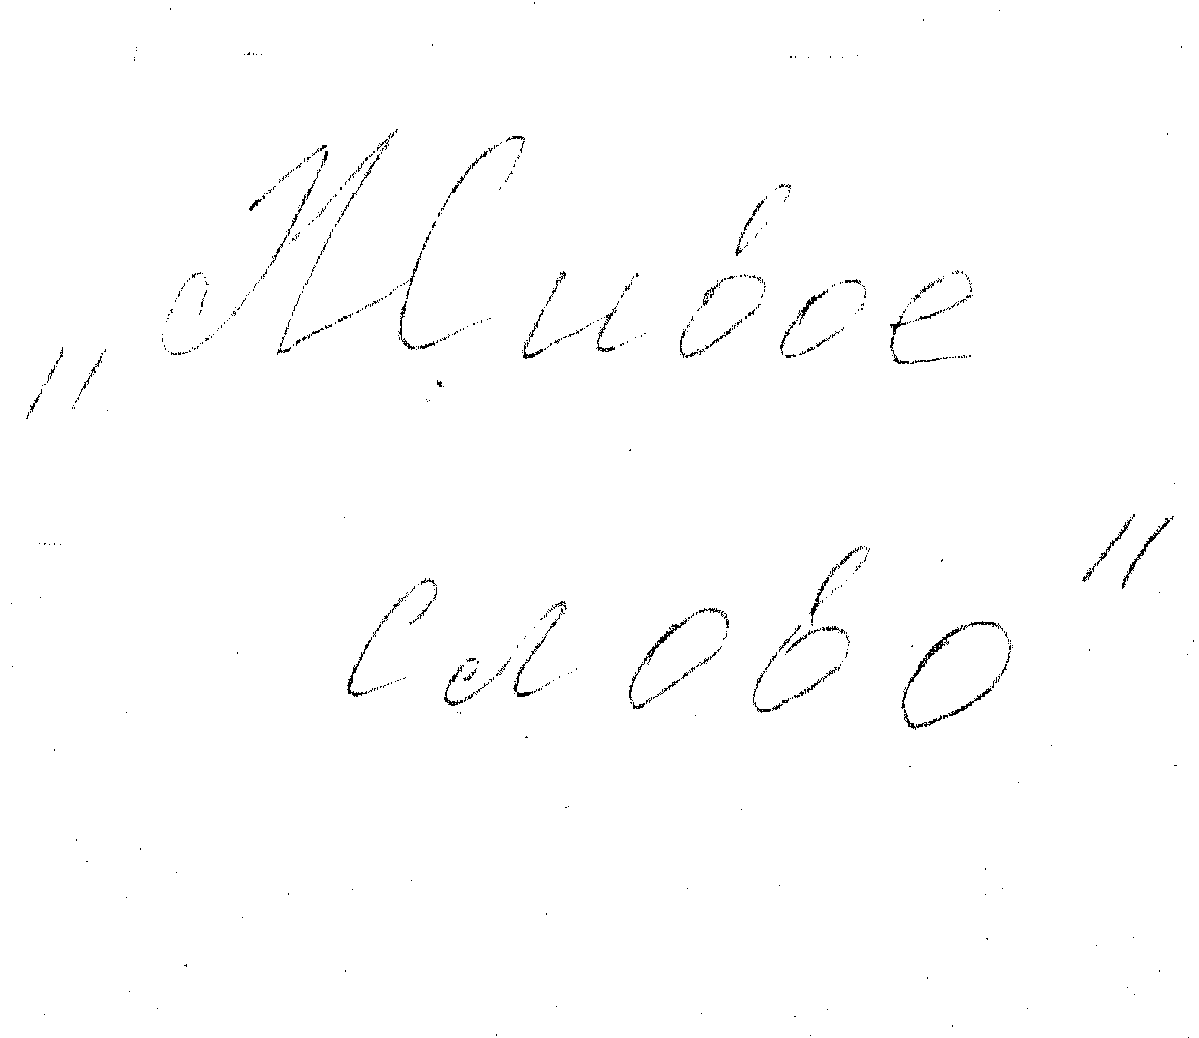 „Живое
слово"